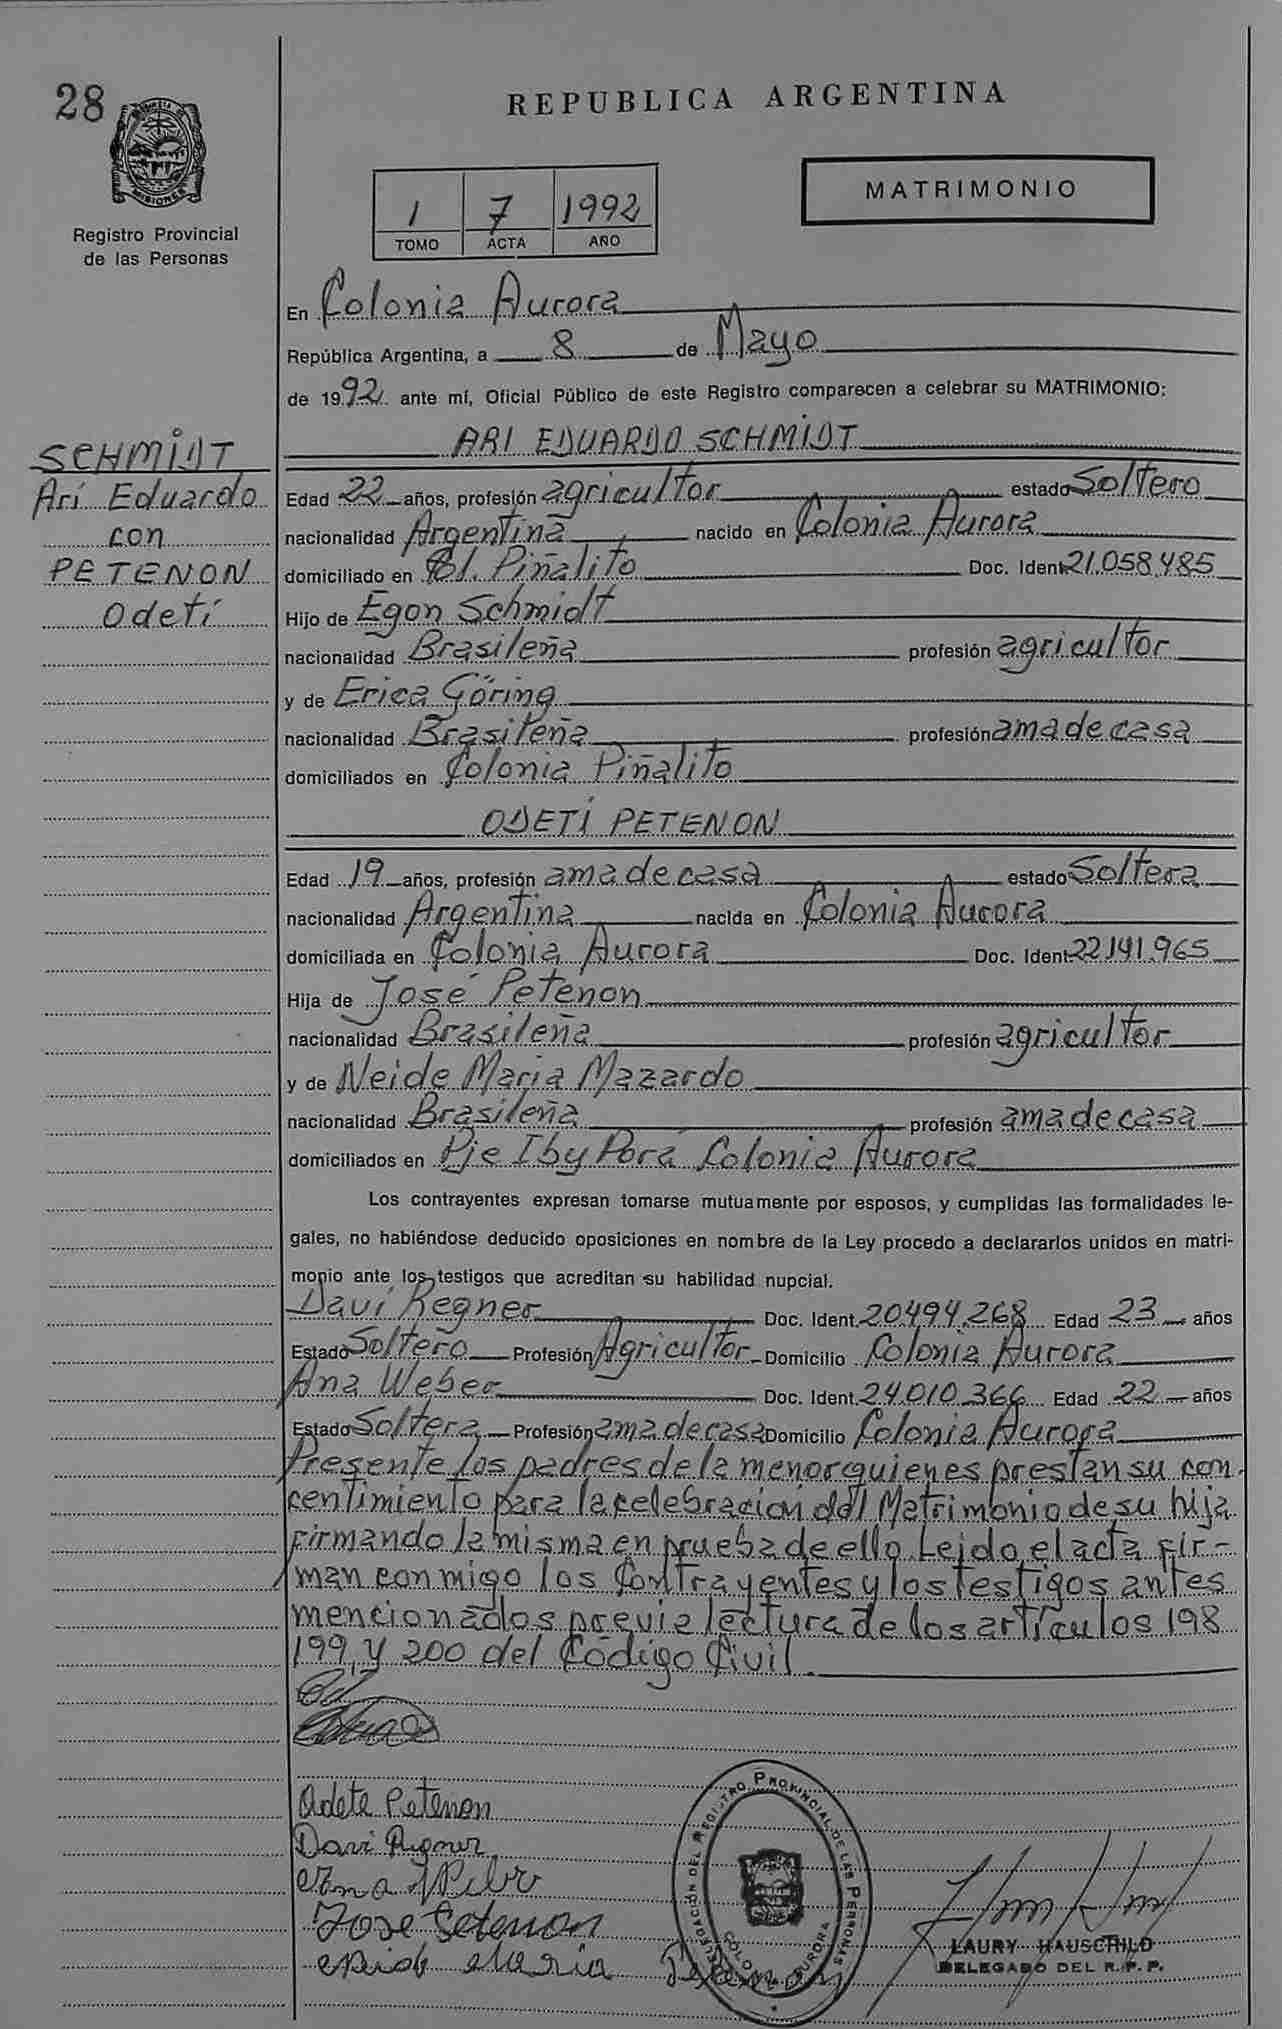 28
REPUBLICA ARGENTINA
MISIONES
Registro Provincial
de las Personas
1 7 1992
TOMO ACTA AÑO
MATRIMONIO
En Colonia Aurora
República Argentina, a 8 de Mayo
de 1992 ante mí, Oficial Público de este Registro comparecen a celebrar su MATRIMONIO:
SCHMIDT
Ari Eduardo
con
PETENON
Odetí
ARI EDUARDO SCHMIDT
Edad 22 años, profesión agricultor estado Soltero
nacionalidad Argentina nacido en Colonia Aurora
domiciliado en Col. Piñalito Doc. Ident. 21.058.485
Hijo de Egon Schmidt
nacionalidad Brasileña profesión agricultor
y de Erica Göring
nacionalidad Brasileña profesión ama de casa
domiciliados en Colonia Piñalito
ODETÍ PETENON
Edad 19 años, profesión ama de casa estado Soltera
nacionalidad Argentina nacida en Colonia Aurora
domiciliada en Colonia Aurora Doc. Ident. 22.141.965
Hija de José Petenon
nacionalidad Brasileña profesión agricultor
y de Neide Maria Mazardo
nacionalidad Brasileña profesión ama de casa
domiciliados en Pje Iby Porá Colonia Aurora
Los contrayentes expresan tomarse mutuamente por esposos, y cumplidas las formalidades le-
gales, no habiéndose deducido oposiciones en nombre de la Ley procedo a declararlos unidos en matri-
monio ante los testigos que acreditan su habilidad nupcial.
Daví Regner Doc. Ident. 20.494.268 Edad 23 años
Estado Soltero Profesión Agricultor Domicilio Colonia Aurora
Ana Weber Doc. Ident. 24.010.366 Edad 22 años
Estado Soltera Profesión ama de casa Domicilio Colonia Aurora
Presente los padres de la menor quienes prestan su con-
centimiento para la celebración del Matrimonio de su hija
firmando la misma en prueba de ello. Leido el acta fir-
man conmigo los Contrayentes y los testigos antes
mencionados previa lectura de los artículos 198
199, y 200 del Código Civil.
Odete Petenon
Davi Regner
Ana Weber
Jose Petenon
Neide Maria Petenon
DELEGACIÓN DEL REGISTRO PROVINCIAL DE LAS PERSONAS
COLONIA AURORA
LAURY HAUSCHILD
DELEGADO DEL R.P.P.